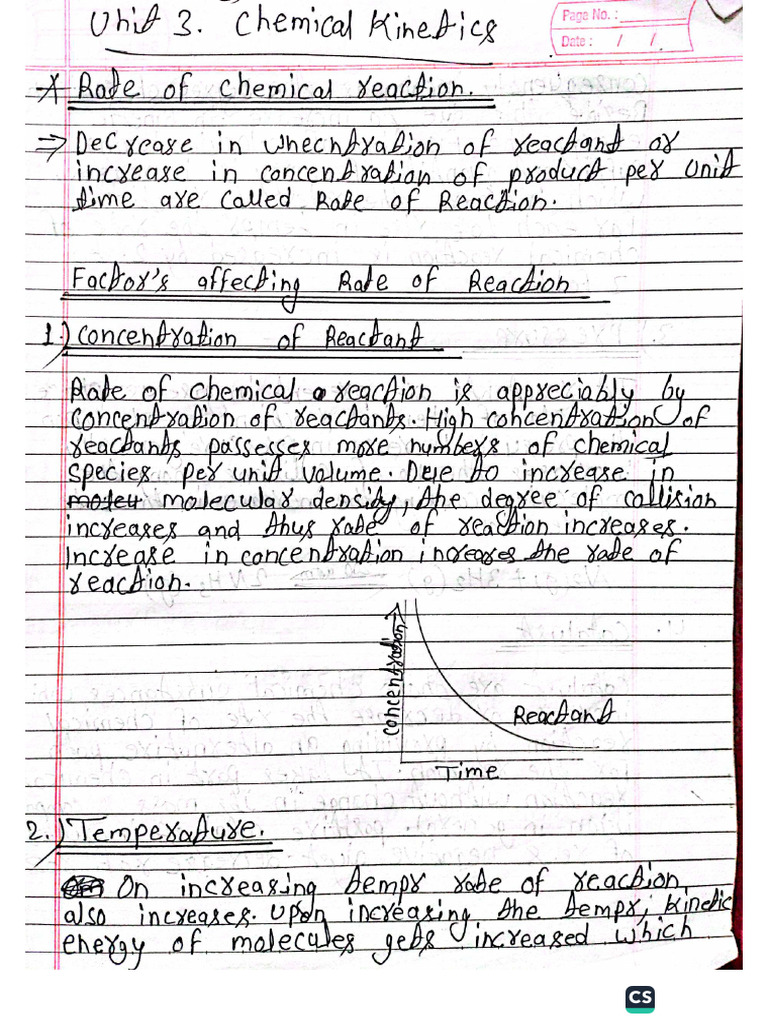 Unit 3. Chemical Kinetics
Page No.:
Date: / /
* Rate of chemical reaction.
⇒ Decrease in whecntration of reactant or
increase in concentration of product per unit
time are called Rate of Reaction.
Factor's affecting Rate of Reaction
1.) Concentration of Reactant
Rate of chemical reaction is appreciably by
concentration of reactants. High concentration of
reactants passesses more numbers of chemical
species per unit volume. Due to increase in
molecular density, the degree of collision
increases and thus rate of reaction increases.
Increase in concentration increares the rate of
reaction.
Concentration
Reactant
Time
2.) Temperature.
On increasing tempr rate of reaction
also increases. Upon increasing the tempr, kinetic
energy of molecules gets increased which
CS